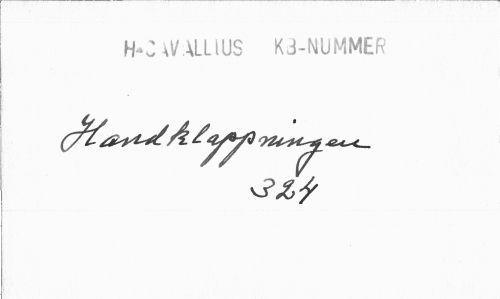 H-CAVALLIUS KB-NUMMER
Handklappningen
324